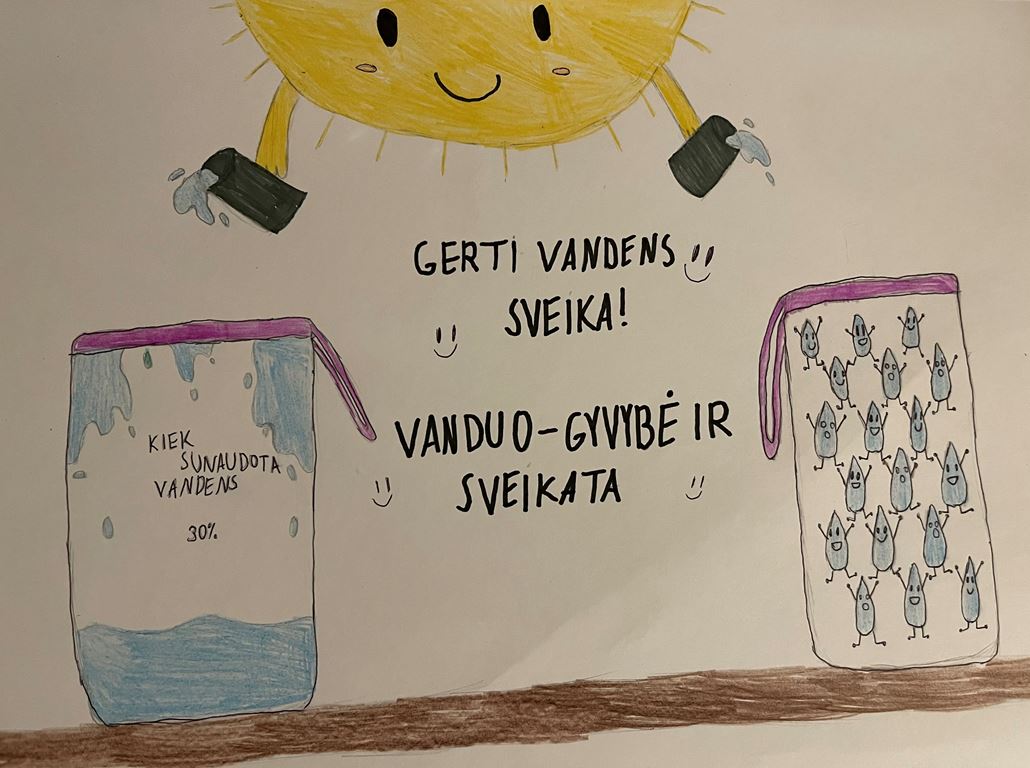 GERTI VANDENS
SVEIKA!
VANDUO-GYVYBĖ IR
SVEIKATA
KIEK
SUNAUDOTA
VANDENS
30%